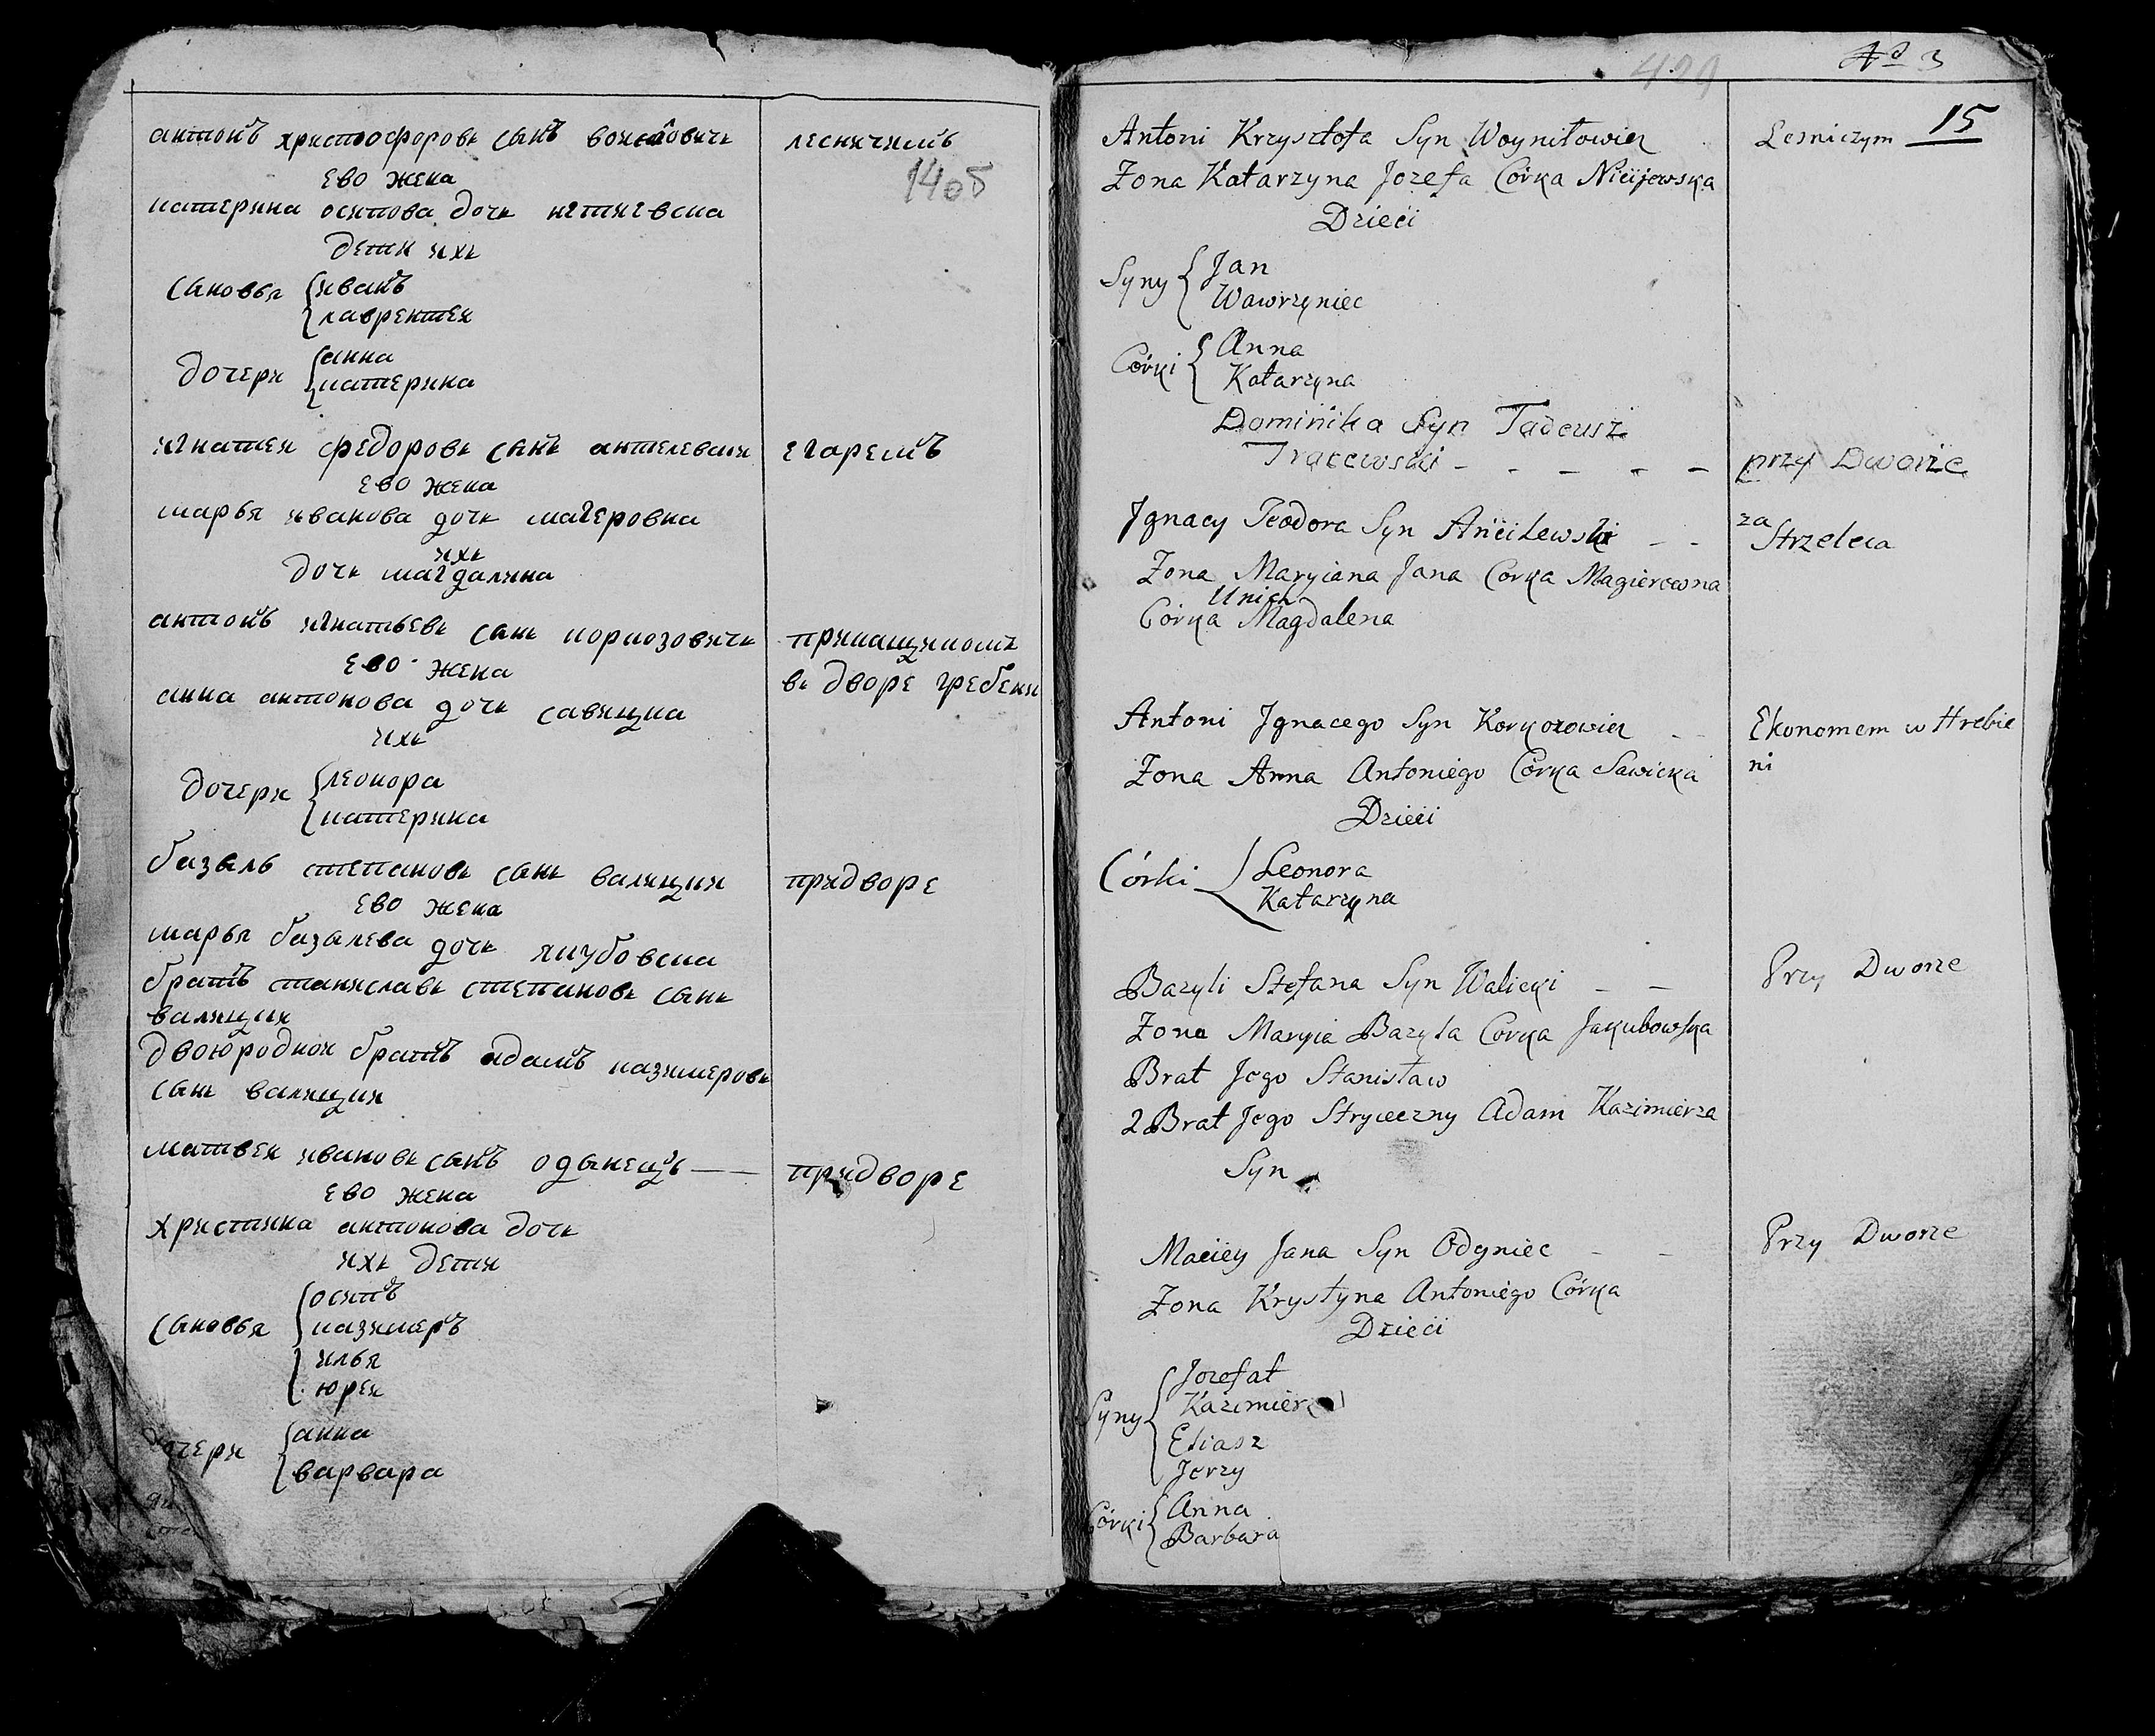 антонъ христофоровъ сынъ воиниловичъ
лесничимъ
1405
ево жена
катерина осипова дочь
дети ихъ
сыновья иванъ
лаврентеи
дочери анна
катерина
игнатеи федоровъ сынъ анцелевски
егаремъ
ево жена
марья иванова дочь магеровна
ихъ
дочь магдалина
антонъ игнатьевъ сынъ коркозовичъ
прикащикомъ
ево жена
въ дворе гребени
анна антонова дочь савицка
ихъ
дочери леонора
катерина
базыль степановъ сынъ валицки
придворе
ево жена
марья базылева дочь якубовска
братъ станиславъ степановъ сынъ
валицки
двоюродной братъ адамъ казимеровъ
сынъ валицки
матвеи ивановъ сынъ одынецъ
придворе
ево жена
христина антонова дочь
ихъ дети
сыновья осипъ
казимеръ
илья
юреи
дочери анна
варвара
429
No 3
15
Antoni Krzysztofa Syn Woyniłowicz
Lesniczym
Zona Katarzyna Jozefa Córka
Dzieci
Syny Jan
Wawrzyniec
Córki Anna
Katarzyna
Dominika Syn Tadeusz
przy Dworze
Jgnacy Teodora Syn Ancilewski
za
Strzelca
Zona Maryiana Jana Corka Magierowna
Unich
Córka Magdalena
Antoni Jgnacego Syn Korkozowicz
Ekonomem w Hrebie
ni
Zona Anna Antoniego Córka Sawicka
Dzieci
Córki Leonora
Katarzyna
Bazyli Stefana Syn Walicki
Przy Dworze
Zona Maryia Bazyla Corka Jakubowska
Brat Jego Stanisław
2 Brat Jego Stryieczny Adam Kazimierza
Syn
Maciey Jana Syn Odyniec
Przy Dworze
Zona Krystyna Antoniego Córka
Dzieci
Syny Jozefat
Kazimierz
Eliasz
Jerzy
Córki Anna
Barbara